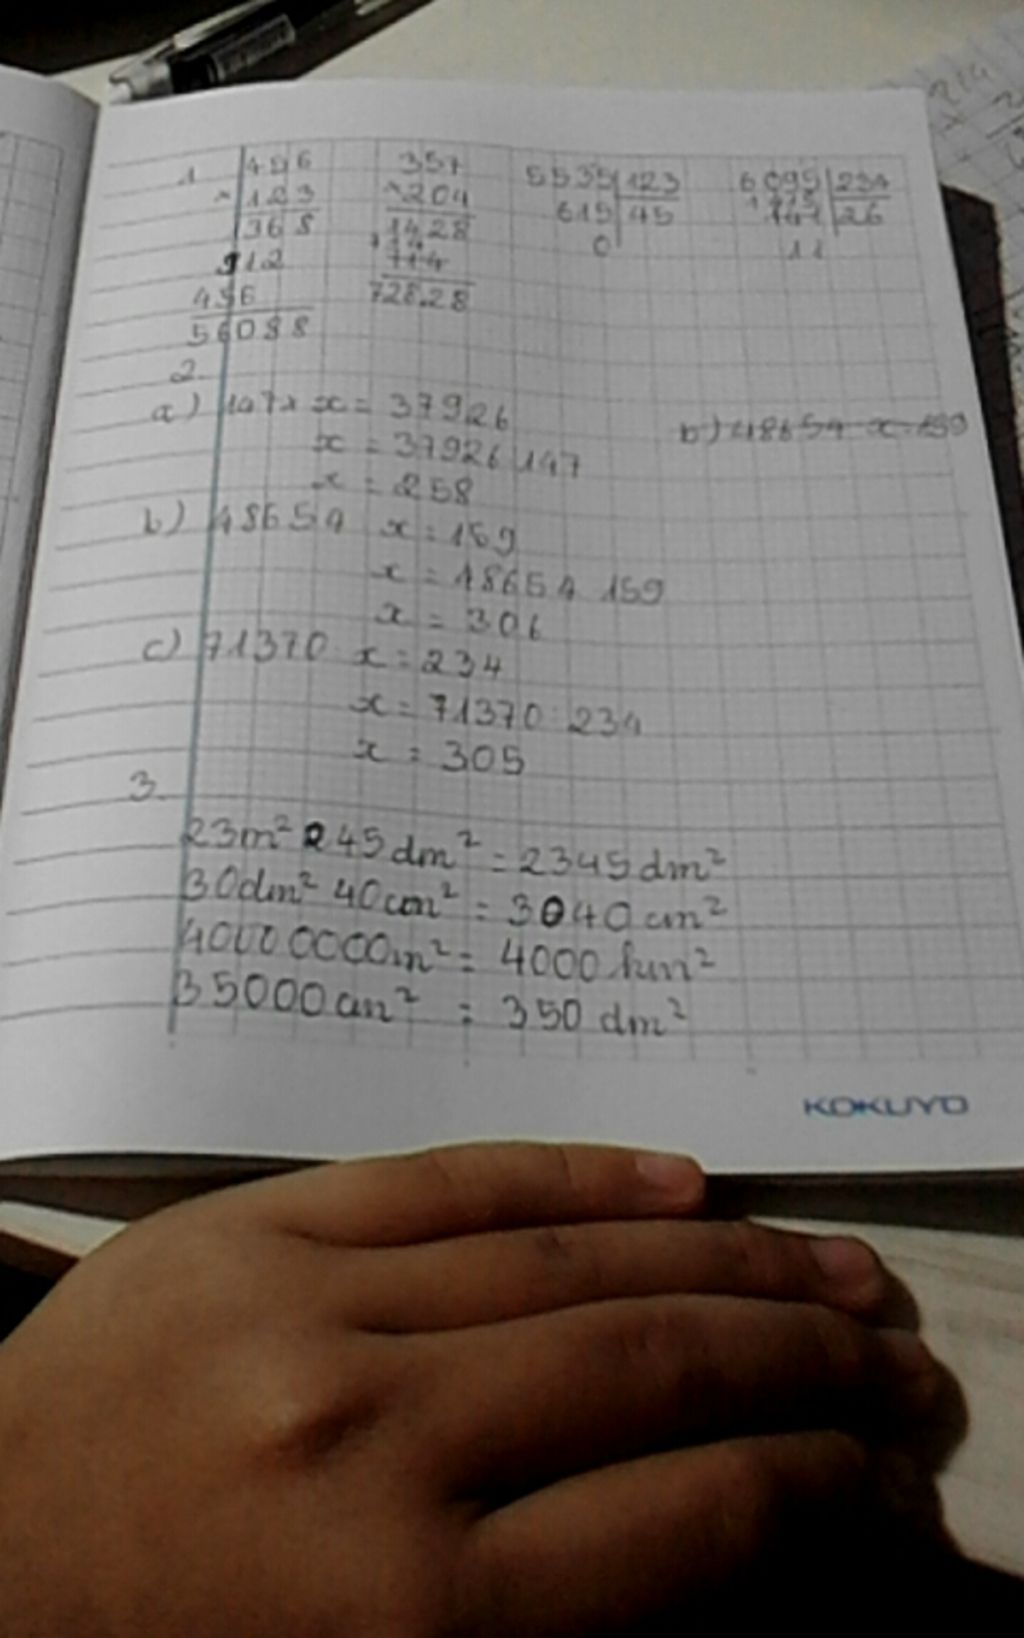 1
456
× 123
1368
912
456
56088
357
× 204
1428
714
72828
5535 123
615 45
0
6095 234
26
11
2
a) 147 × x = 37926
x = 37926 147
x = 258
b) 48654 x = 159
b) 48654 x = 159
x = 48654 159
x = 306
c) 71370 x = 234
x = 71370 : 234
x = 305
3.
23m² 45dm² = 2345dm²
30dm² 40cm² = 3040cm²
35000cm² = 350 dm²
KOKUYO